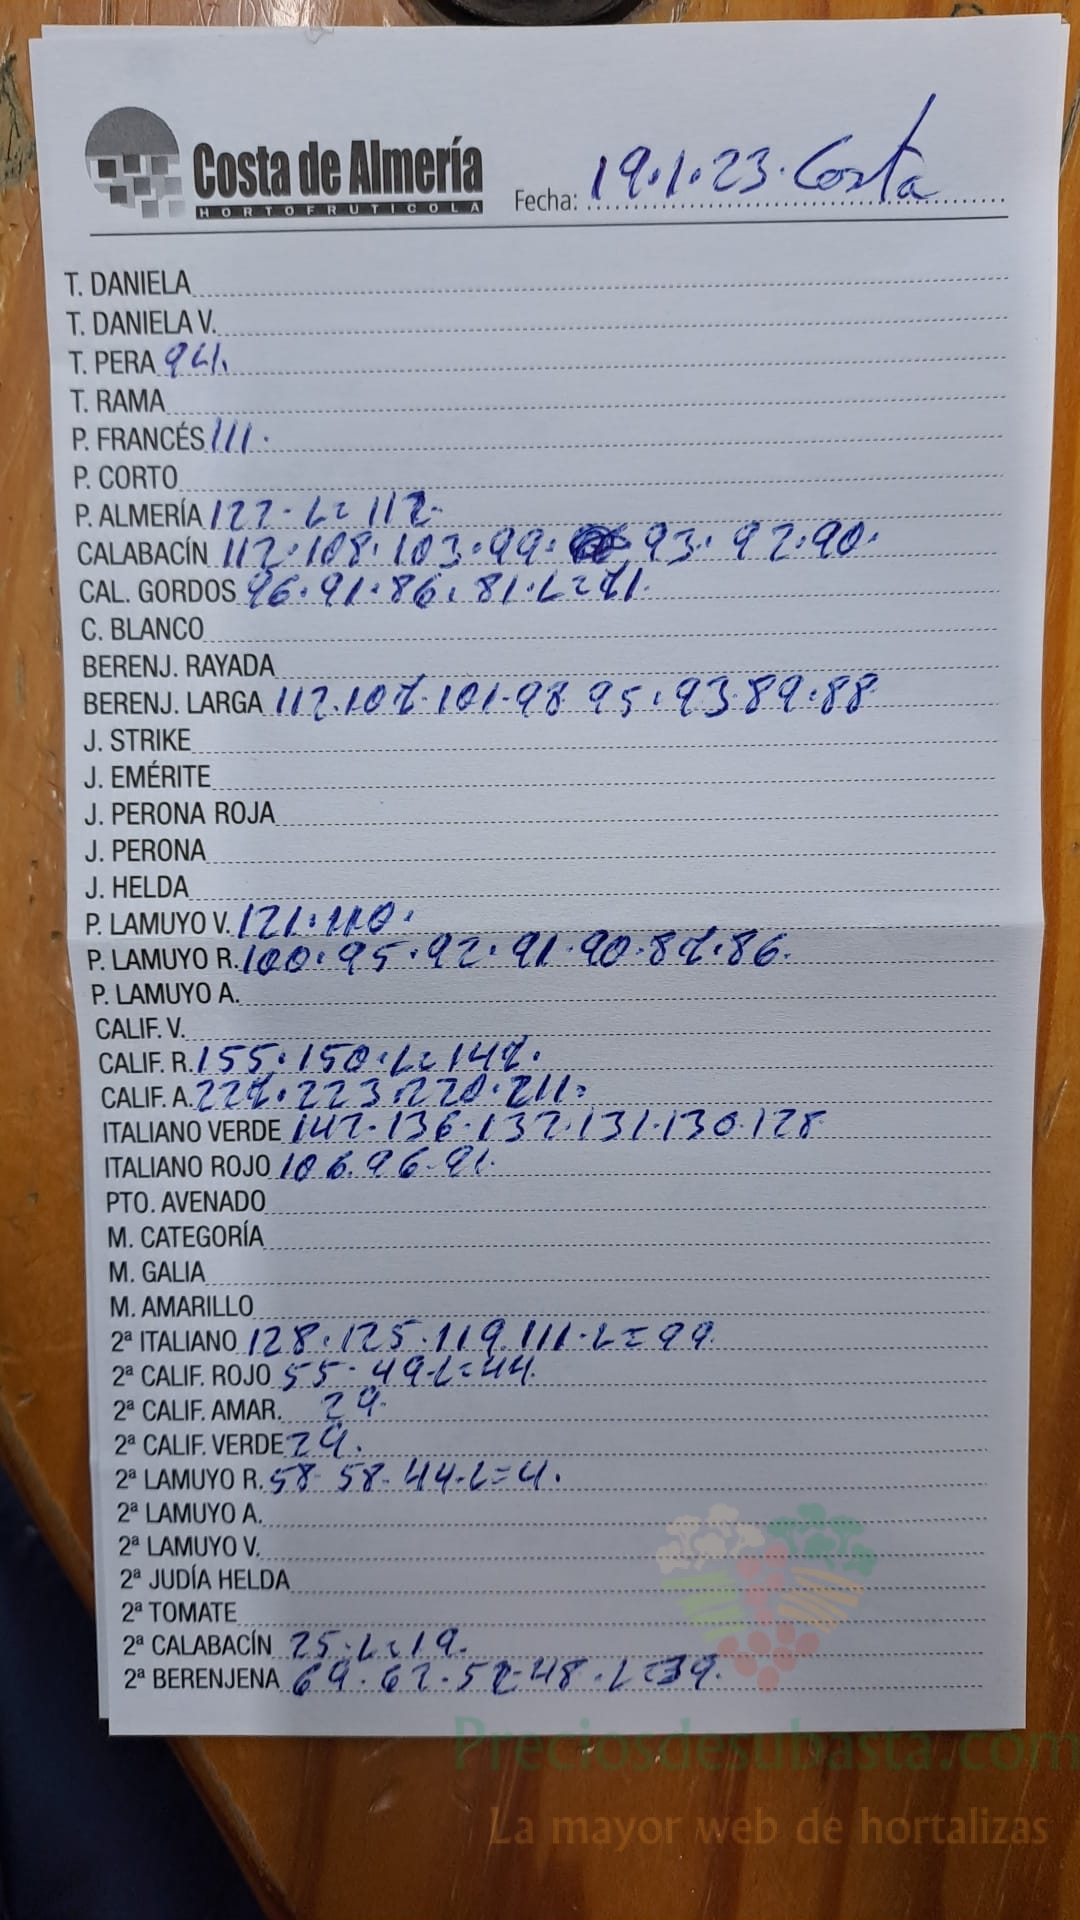 Costa de Almería
HORTOFRUTICOLA
Fecha: 19.1.23. Costa
T. DANIELA
T. DANIELA V.
T. PERA 94.
T. RAMA
P. FRANCÉS 111.
P. CORTO
P. ALMERÍA 122. L= 112.
CALABACÍN 112. 108. 103. 99. 93. 92. 90.
CAL. GORDOS 96. 91. 86. 81. L= 71.
C. BLANCO
BERENJ. RAYADA
BERENJ. LARGA 112. 107. 101. 98 95. 93. 89. 88
J. STRIKE
J. EMÉRITE
J. PERONA ROJA
J. PERONA
J. HELDA
P. LAMUYO V. 121. 110.
P. LAMUYO R. 100. 95. 92. 91. 90. 87. 86.
P. LAMUYO A.
CALIF. V.
CALIF. R. 155. 150. L= 147.
CALIF. A. 227. 223. 220. 211.
ITALIANO VERDE 142. 136. 132. 131. 130. 128
ITALIANO ROJO 106. 96. 91.
PTO. AVENADO
M. CATEGORÍA
M. GALIA
M. AMARILLO
2ª ITALIANO 128. 125. 119. 111. L= 99.
2ª CALIF. ROJO 55. 49. L= 44.
2ª CALIF. AMAR. 29.
2ª CALIF. VERDE 29.
2ª LAMUYO R. 58. 58. 44. L= 4.
2ª LAMUYO A.
2ª LAMUYO V.
2ª JUDÍA HELDA
2ª TOMATE
2ª CALABACÍN 25. L= 19.
2ª BERENJENA 69. 62. 52. 48. L= 39.
Preciosdesubasta.com
La mayor web de hortalizas